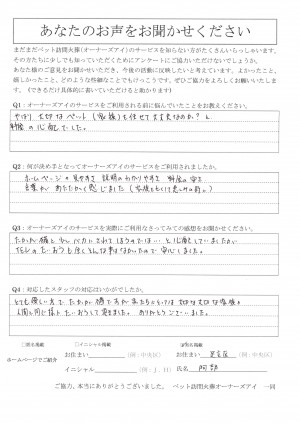 あなたのお声をお聞かせください
まだまだペット訪問火葬（オーナーズアイ）のサービスを知らない方がたくさんいらっしゃいます。
その方たちに少しでも知っていただくためにアンケートにご協力いただけないでしょうか。
あなた様のご意見をお聞かせいただき、今後の活動に反映したいと考えています。よかったこと、
感じたこと、どのような些細なことでもけっこうです。ぜひご協力をよろしくお願いいたします。
（できるだけ具体的に書いていただけると助かります）
Q1：オーナーズアイのサービスをご利用される前に悩んでいたことをお教えください。
やはり 大切なペット（家族）を任せて大丈夫なのか？と
料金の心配でした。
Q2：何が決め手となってオーナーズアイのサービスをご利用されましたか。
ホームページの見やすさ 説明のわかりやすさ 料金の安さ
言葉が あたたかく感じました
Q3：オーナーズアイのサービスを実際にご利用なさってみての感想をお聞かせください。
たかが猫と 少しバカにされてしまうのでは… と心配していましたが
対応の たいおうも全くそんな事はなかったので 安心しました。
Q4：対応したスタッフの対応はいかがでしたか。
とても優しい方で たかが 猫ですが 私たちにとっては 大切な大切な家族
人間と同じ様に たいおうして頂きました。ありがとうございました。
□匿名掲載 □イニシャル掲載 氏名掲載
ホームページでご紹介
お住まい （例：中央区） お住まい 足立区 （例：中央区）
イニシャル （例：J．H） 氏名 阿部
ご協力、本当にありがとうございました。 ペット訪問火葬オーナーズアイ 一同